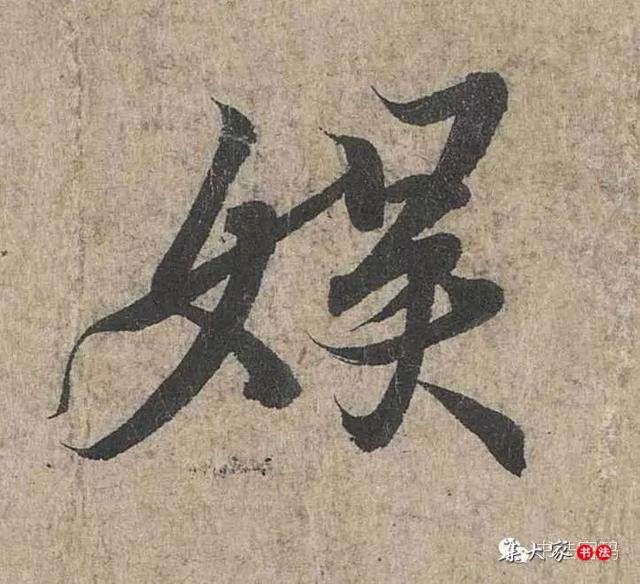 娱
集大家书法